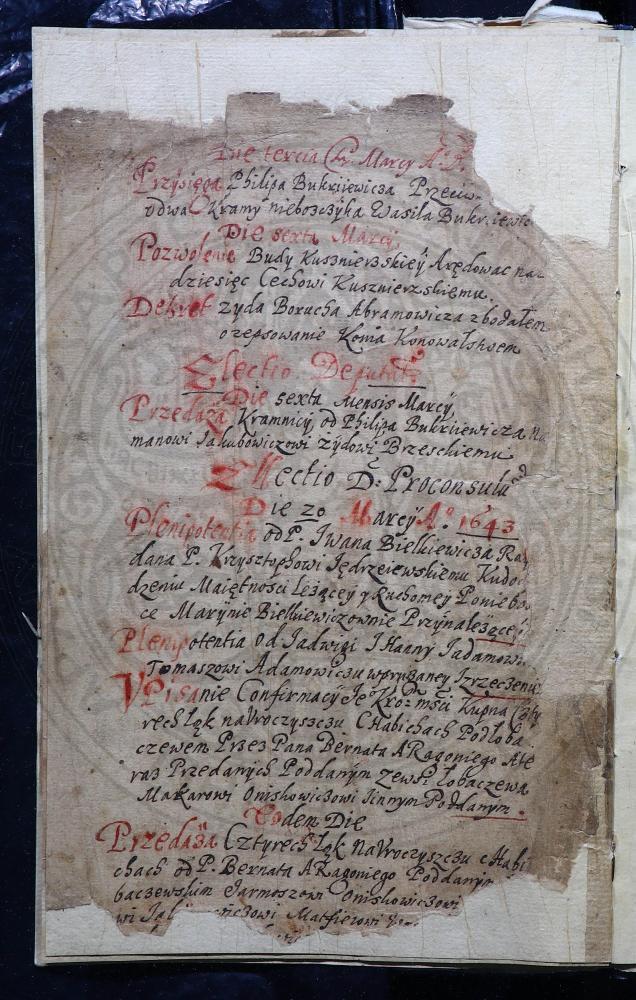 Die tercia Marcy A° D.
Przysięga Philipa Bukriiewicza Przeciw
odwa Kramy nieboszczyka Wasila Bukriiewic
Die sexta Marcy,
Pozwolenie Budy Kusznierzskiey Arędowac na
dziesięc Cechowi Kusznierzskiemu
Dekret zyda Borucha Abramowicza zbodałem
o zepsowanie Konia Konowalstwem
Electio Deputat
Die sexta Mensis Marcy,
Przedaża Kramnicy od Philipa Bukriiewicza Na
manowi Jakubowiczowi żydowi Brzeskiemu
Ellectio D: Proconsulu
Die 20 Marcy A° 1643
Plenipotentia od P. Iwana Bielkiewicza Ra
dana P. Krzysztophowi Jędrzeiewskiemu Kudo
dzeniu Maiętnosci Leżącey y Ruchomey Ponieb
ce Marynie Bielkiewiczownie Przynależące
Plenipotentia od Jadwigi I Hanny Jadamow
Tomaszowi Adamowiczu wpruzaney Izrzeczeniu
VPisanie Confirmacy Je° Kro° mści Kupna Czty
rech Łąk na Vroczyszczu CHabichach Podłoba
czewem Przez Pana Bernata ARagoniego Ate
raz Przedanych Poddanym Zewsi Łobaczewa
Makarowi Oniskowiczowi Iinnym Poddanym.
Eodem Die
Przedaża Cztyrech Łąk Na Vroczyszczu cHabi
chach od P. Bernata ARagoniego Poddanym
baczewskim Jarmoszowi Oniskowiczowi
wi Jal nczowi Matfieiowi